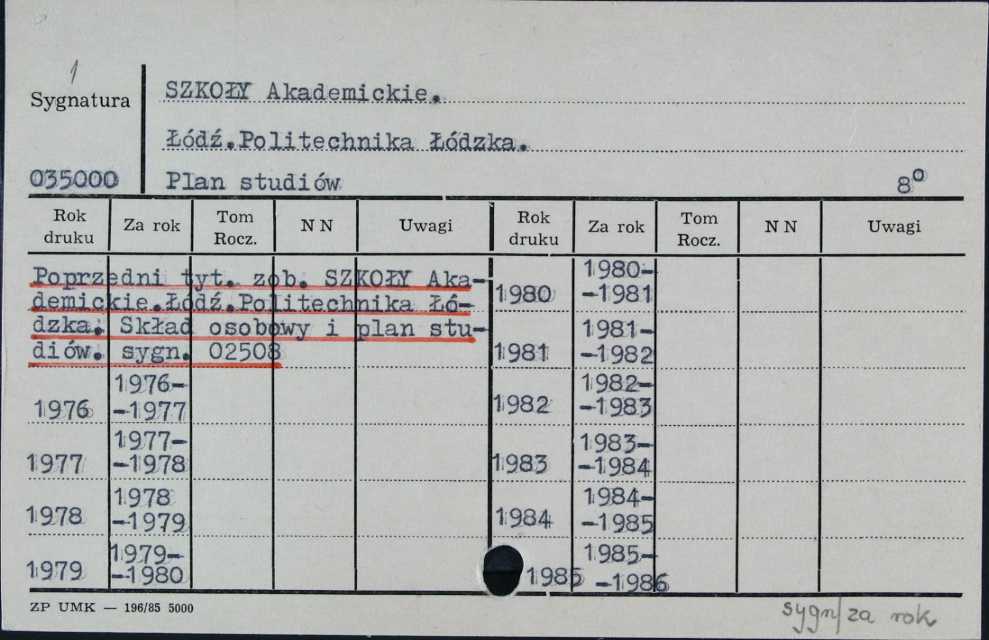 1
Sygnatura
SZKOŁY Akademickie.
Łódź.Politechnika Łódzka.
035000
Plan studiów
8º
Rok druku Za rok Tom Rocz. NN Uwagi Rok druku Za rok Tom Rocz. NN Uwagi
Poprzedni tyt. zob. SZKOŁY Aka-
demickie.Łódź.Politechnika Łó-
dzka. Skład osobowy i plan stu-
diów. sygn. 02508
1976 1976-
-1977
1977 1977-
-1978
1978 1978
-1979
1979 1979-
-1980
1980 1980-
-1981
1981 1981-
-1982
1982 1982-
-1983
1983 1983-
-1984
1984 1984-
-1985
1985 1985-
-1986
ZP UMK — 196/85 5000
sygn/za rok